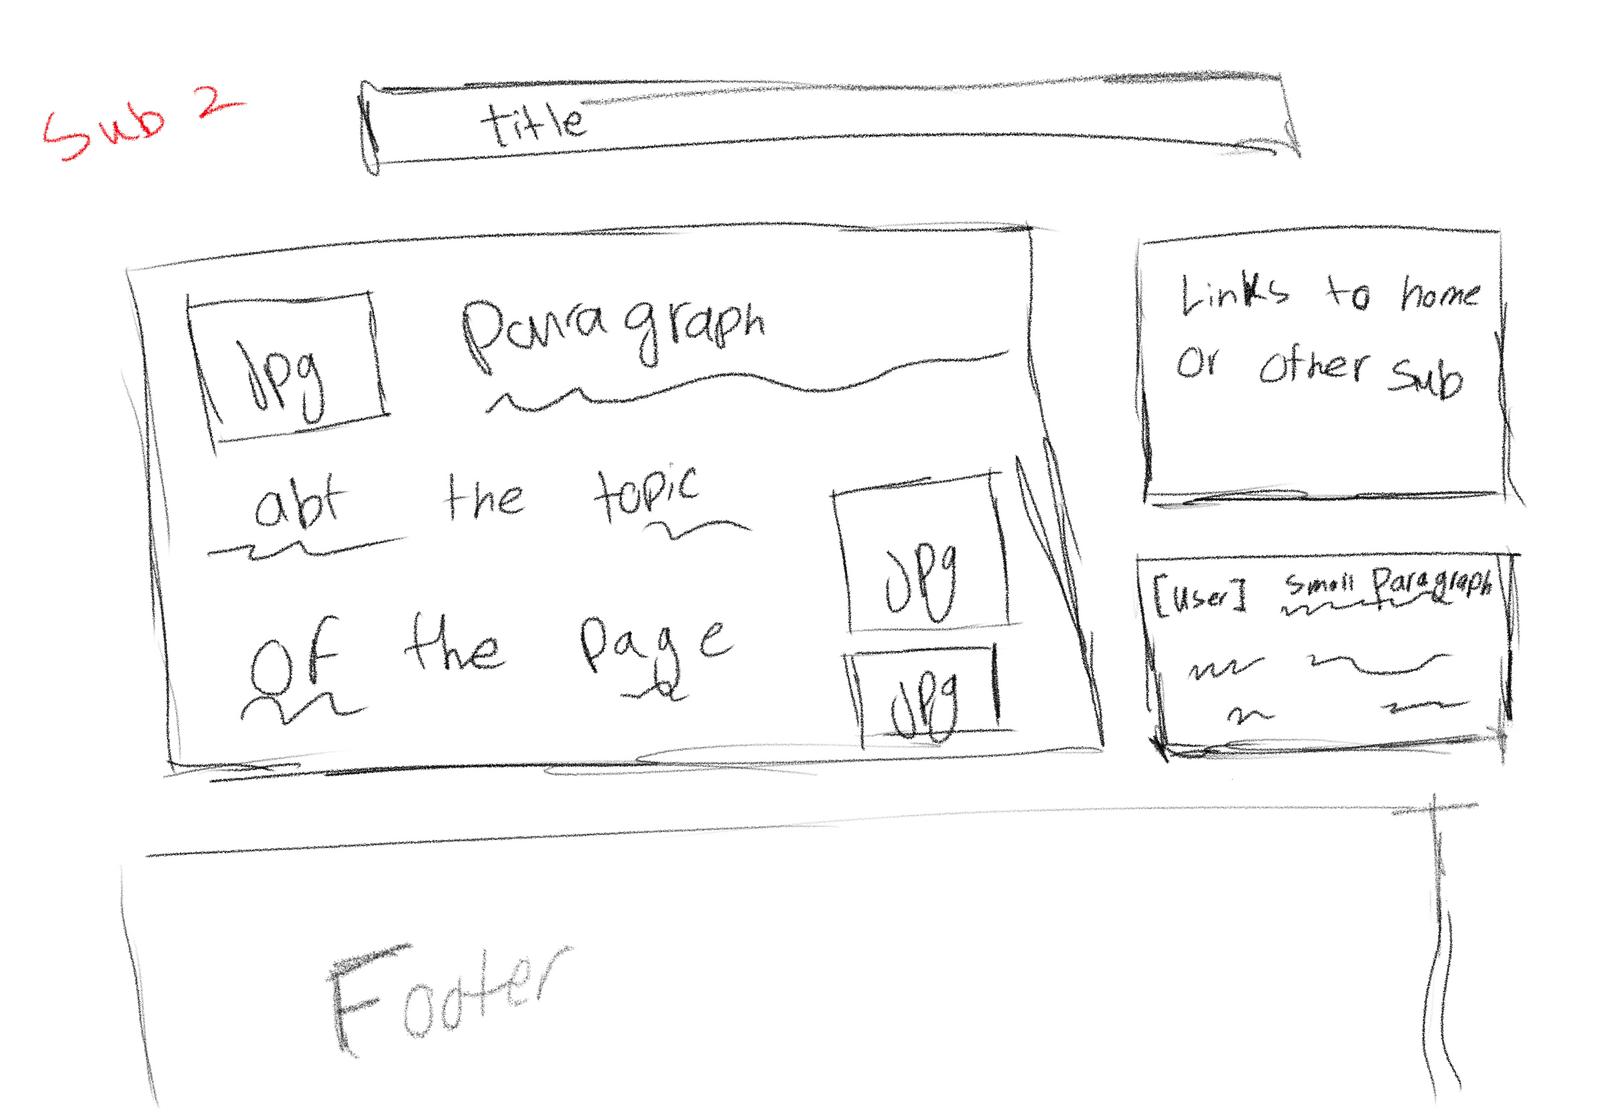 Sub 2
title
Jpg
Paragraph
abt the topic
Jpg
of the page
Jpg
Links to home
or other sub
[user] small Paragraph
Footer